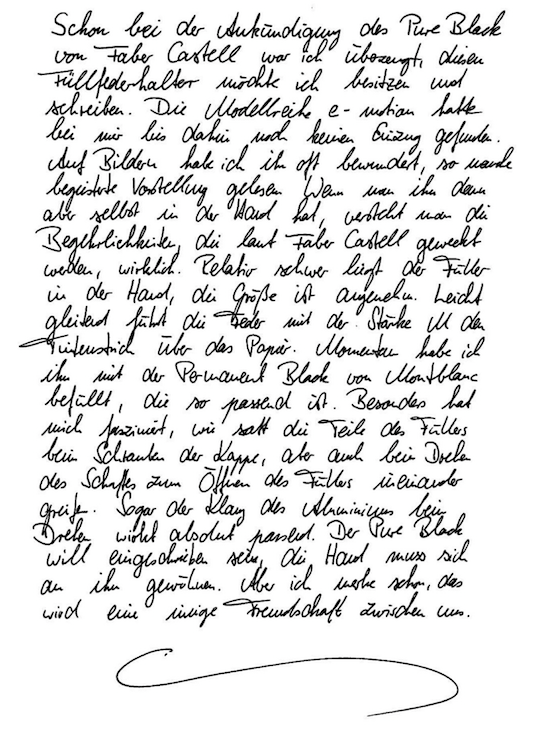 Schon bei der Ankündigung des Pure Black
von Faber Castell war ich überzeugt, diesen
Füllfederhalter möchte ich besitzen und
schreiben. Die Modellreihe e-motion hatte
bei mir bis dahin noch keinen Einzug gefunden.
Auf Bildern habe ich ihn oft bewundert, so manche
begeisterte Vorstellung gelesen. Wenn man ihn dann
aber selbst in der Hand hat, versteht man die
Begehrlichkeiten, die laut Faber Castell geweckt
werden, wirklich. Relativ schwer liegt der Füller
in der Hand, die Größe ist angenehm. Leicht
gleitend führt die Feder mit der Stärke M den
Tintenstrich über das Papier. Momentan habe ich
ihn mit der Permanent Black von Montblanc
befüllt, die so passend ist. Besonders hat
mich fasziniert, wie satt die Teile des Füllers
beim Schrauben der Kappe, aber auch beim Drehen
des Schaftes zum Öffnen des Füllers ineinander
greifen. Sogar der Klang des Aluminiums beim
Drehen wirkt absolut passend. Der Pure Black
will eingeschrieben sein, die Hand muss sich
an ihn gewöhnen. Aber ich merke schon, das
wird eine innige Freundschaft zwischen uns.